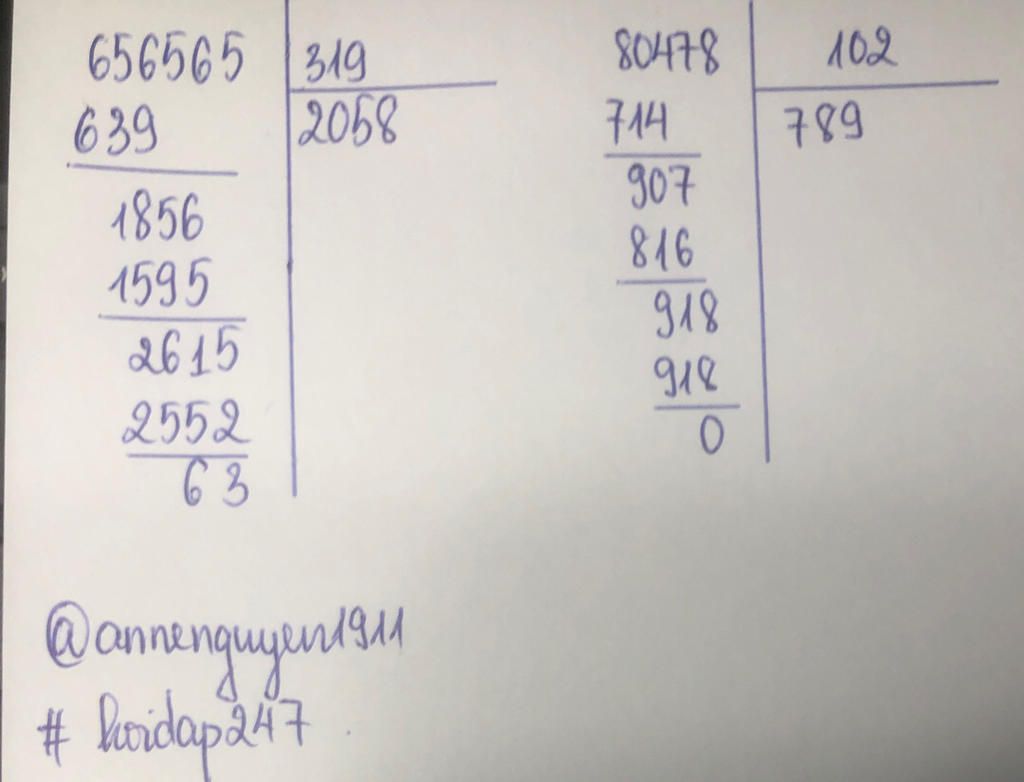 656565 319
639 2058
1856
1595
2615
2552
63
80478 102
714 789
907
816
918
918
0
@annenguyen1911
# hoidap247